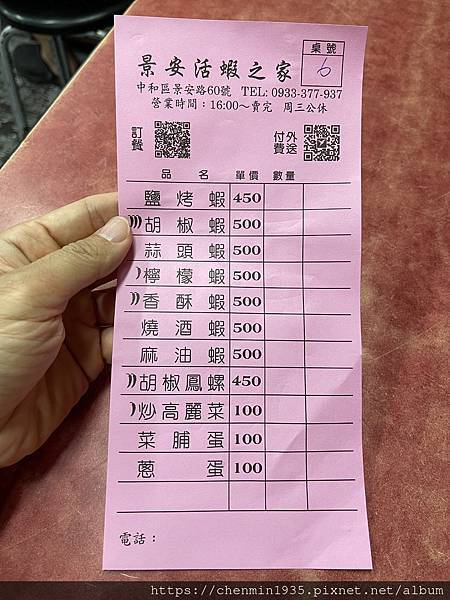 桌號
6
景安活蝦之家
中和區景安路60號 TEL: 0933-377-937
營業時間：16:00～賣完 周三公休
訂餐
付費外送
品名 單價 數量
鹽烤蝦 450
)))胡椒蝦 500
蒜頭蝦 500
)檸檬蝦 500
))香酥蝦 500
燒酒蝦 500
麻油蝦 500
))胡椒鳳螺 450
)炒高麗菜 100
菜脯蛋 100
蔥蛋 100
電話：
https://chenmin1935.pixnet.net/album